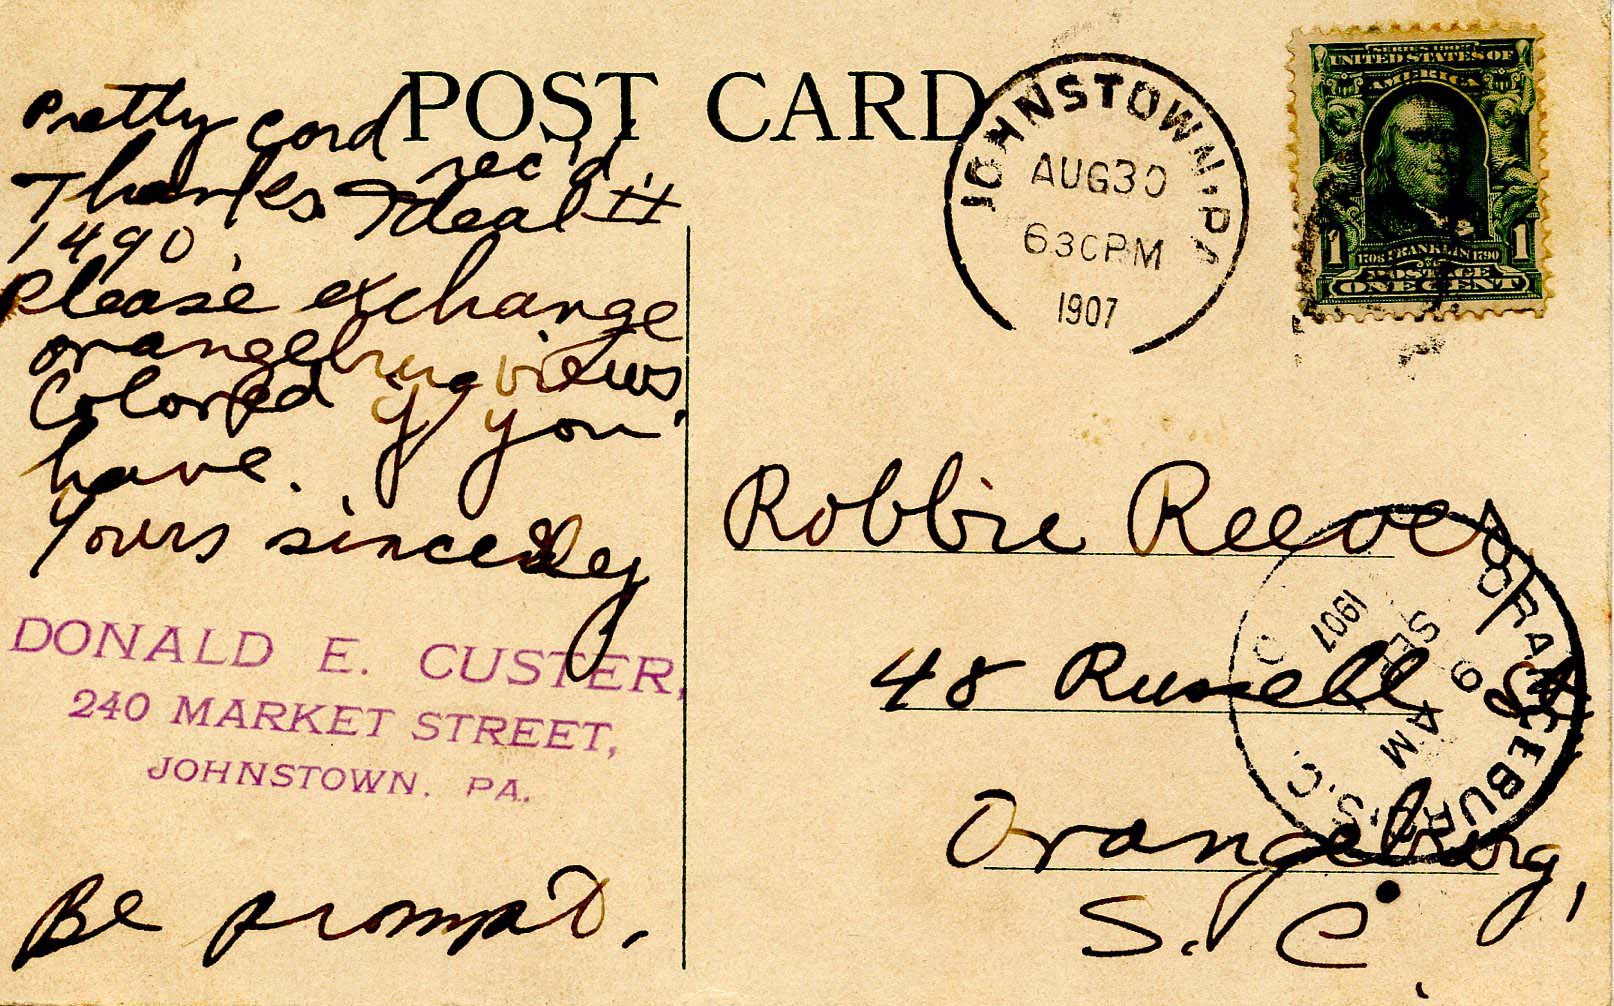 POST CARD
Pretty card rec'd.
Thanks. Ideal #
1490.
Please exchange
orangeburg views
Colored if you
have.
Yours sincerely
DONALD E. CUSTER,
240 MARKET STREET,
JOHNSTOWN. PA.
Be prompt.
JOHNSTOWN, PA
AUG 30
630PM
1907
SERIES 1902
UNITED STATES OF
AMERICA
1708 FRANKLIN 1790
1 POSTAGE 1
ONE CENT
Robbie Reeves
48 Russell St
Orangeburg,
S. C.
ORANGEBURG, S.C.
SEP
9
AM
1907